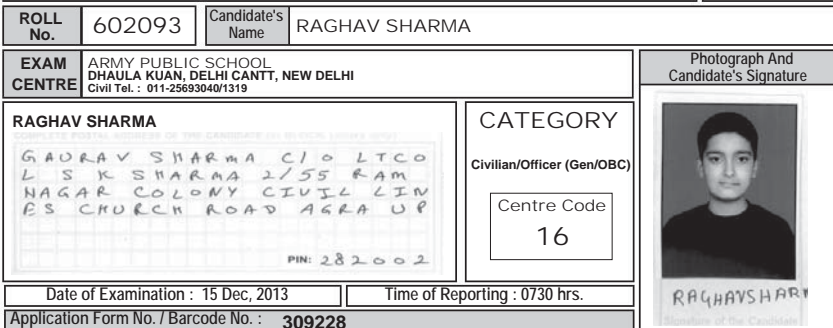 ROLL No. 602093 Candidate's Name RAGHAV SHARMA
EXAM CENTRE
ARMY PUBLIC SCHOOL
DHAULA KUAN, DELHI CANTT, NEW DELHI
Civil Tel. : 011-25693040/1319
Photograph And
Candidate's Signature
RAGHAV SHARMA
COMPLETE POSTAL ADDRESS OF THE CANDIDATE
GAURAV SHARMA C/O LTCO
L S K SHARMA 2/55 RAM
NAGAR COLONY CIVIL LIN
ES CHURCH ROAD AGRA UP
PIN: 282002
CATEGORY
Civilian/Officer (Gen/OBC)
Centre Code
16
RAGHAVSHAR
Signature of the Candidate
Date of Examination : 15 Dec, 2013
Time of Reporting : 0730 hrs.
Application Form No. / Barcode No. : 309228